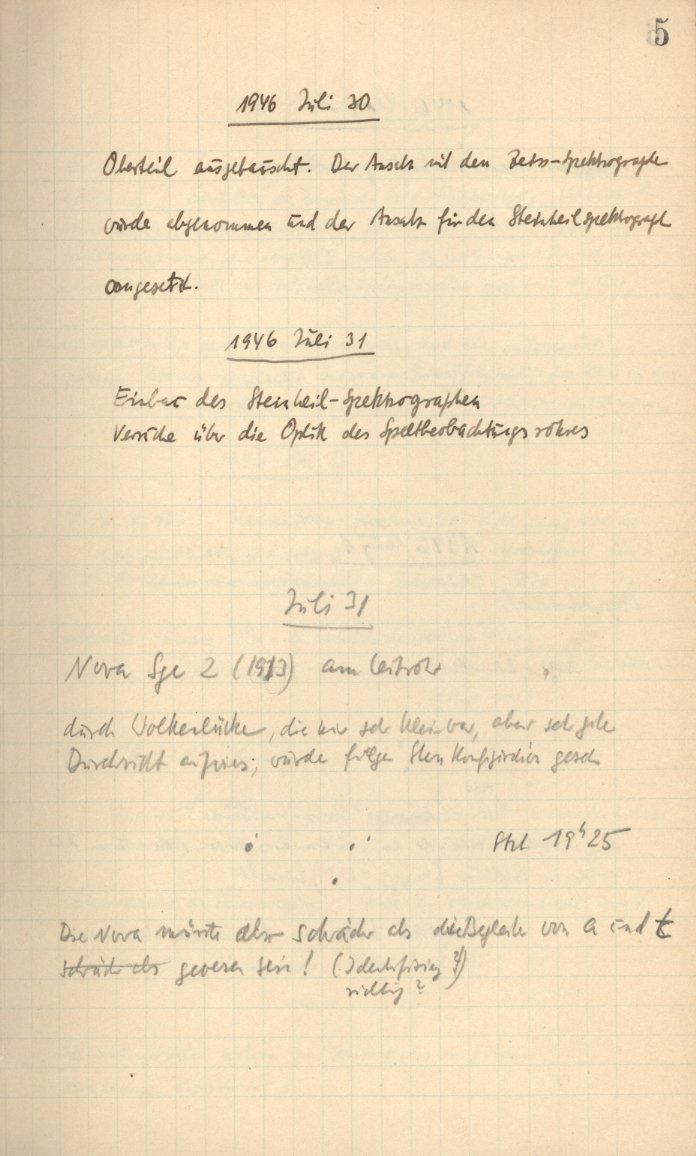 5
1946 Juli 30
Oberteil ausgetauscht. Der Ansatz mit dem Zeiss-Spektrographen
wurde abgenommen und der Ansatz für den Steinheilspektrograph
angesetzt.
1946 Juli 31
Einbau des Steinheil-Spektrographen
Versuche über die Optik des Spaltbeobachtungsrohres
Juli 31
Nova Sge 2 (1913) am Leitrohr
durch Wolkenlücke, die nur sehr klein war, aber sehr gute
Durchsicht aufwies, wurde folge
19h25
Die Nova müsste also schwächer als die Begleiter von a und
schwächer als gewesen sein! (Identifizierg ?)
richtig?